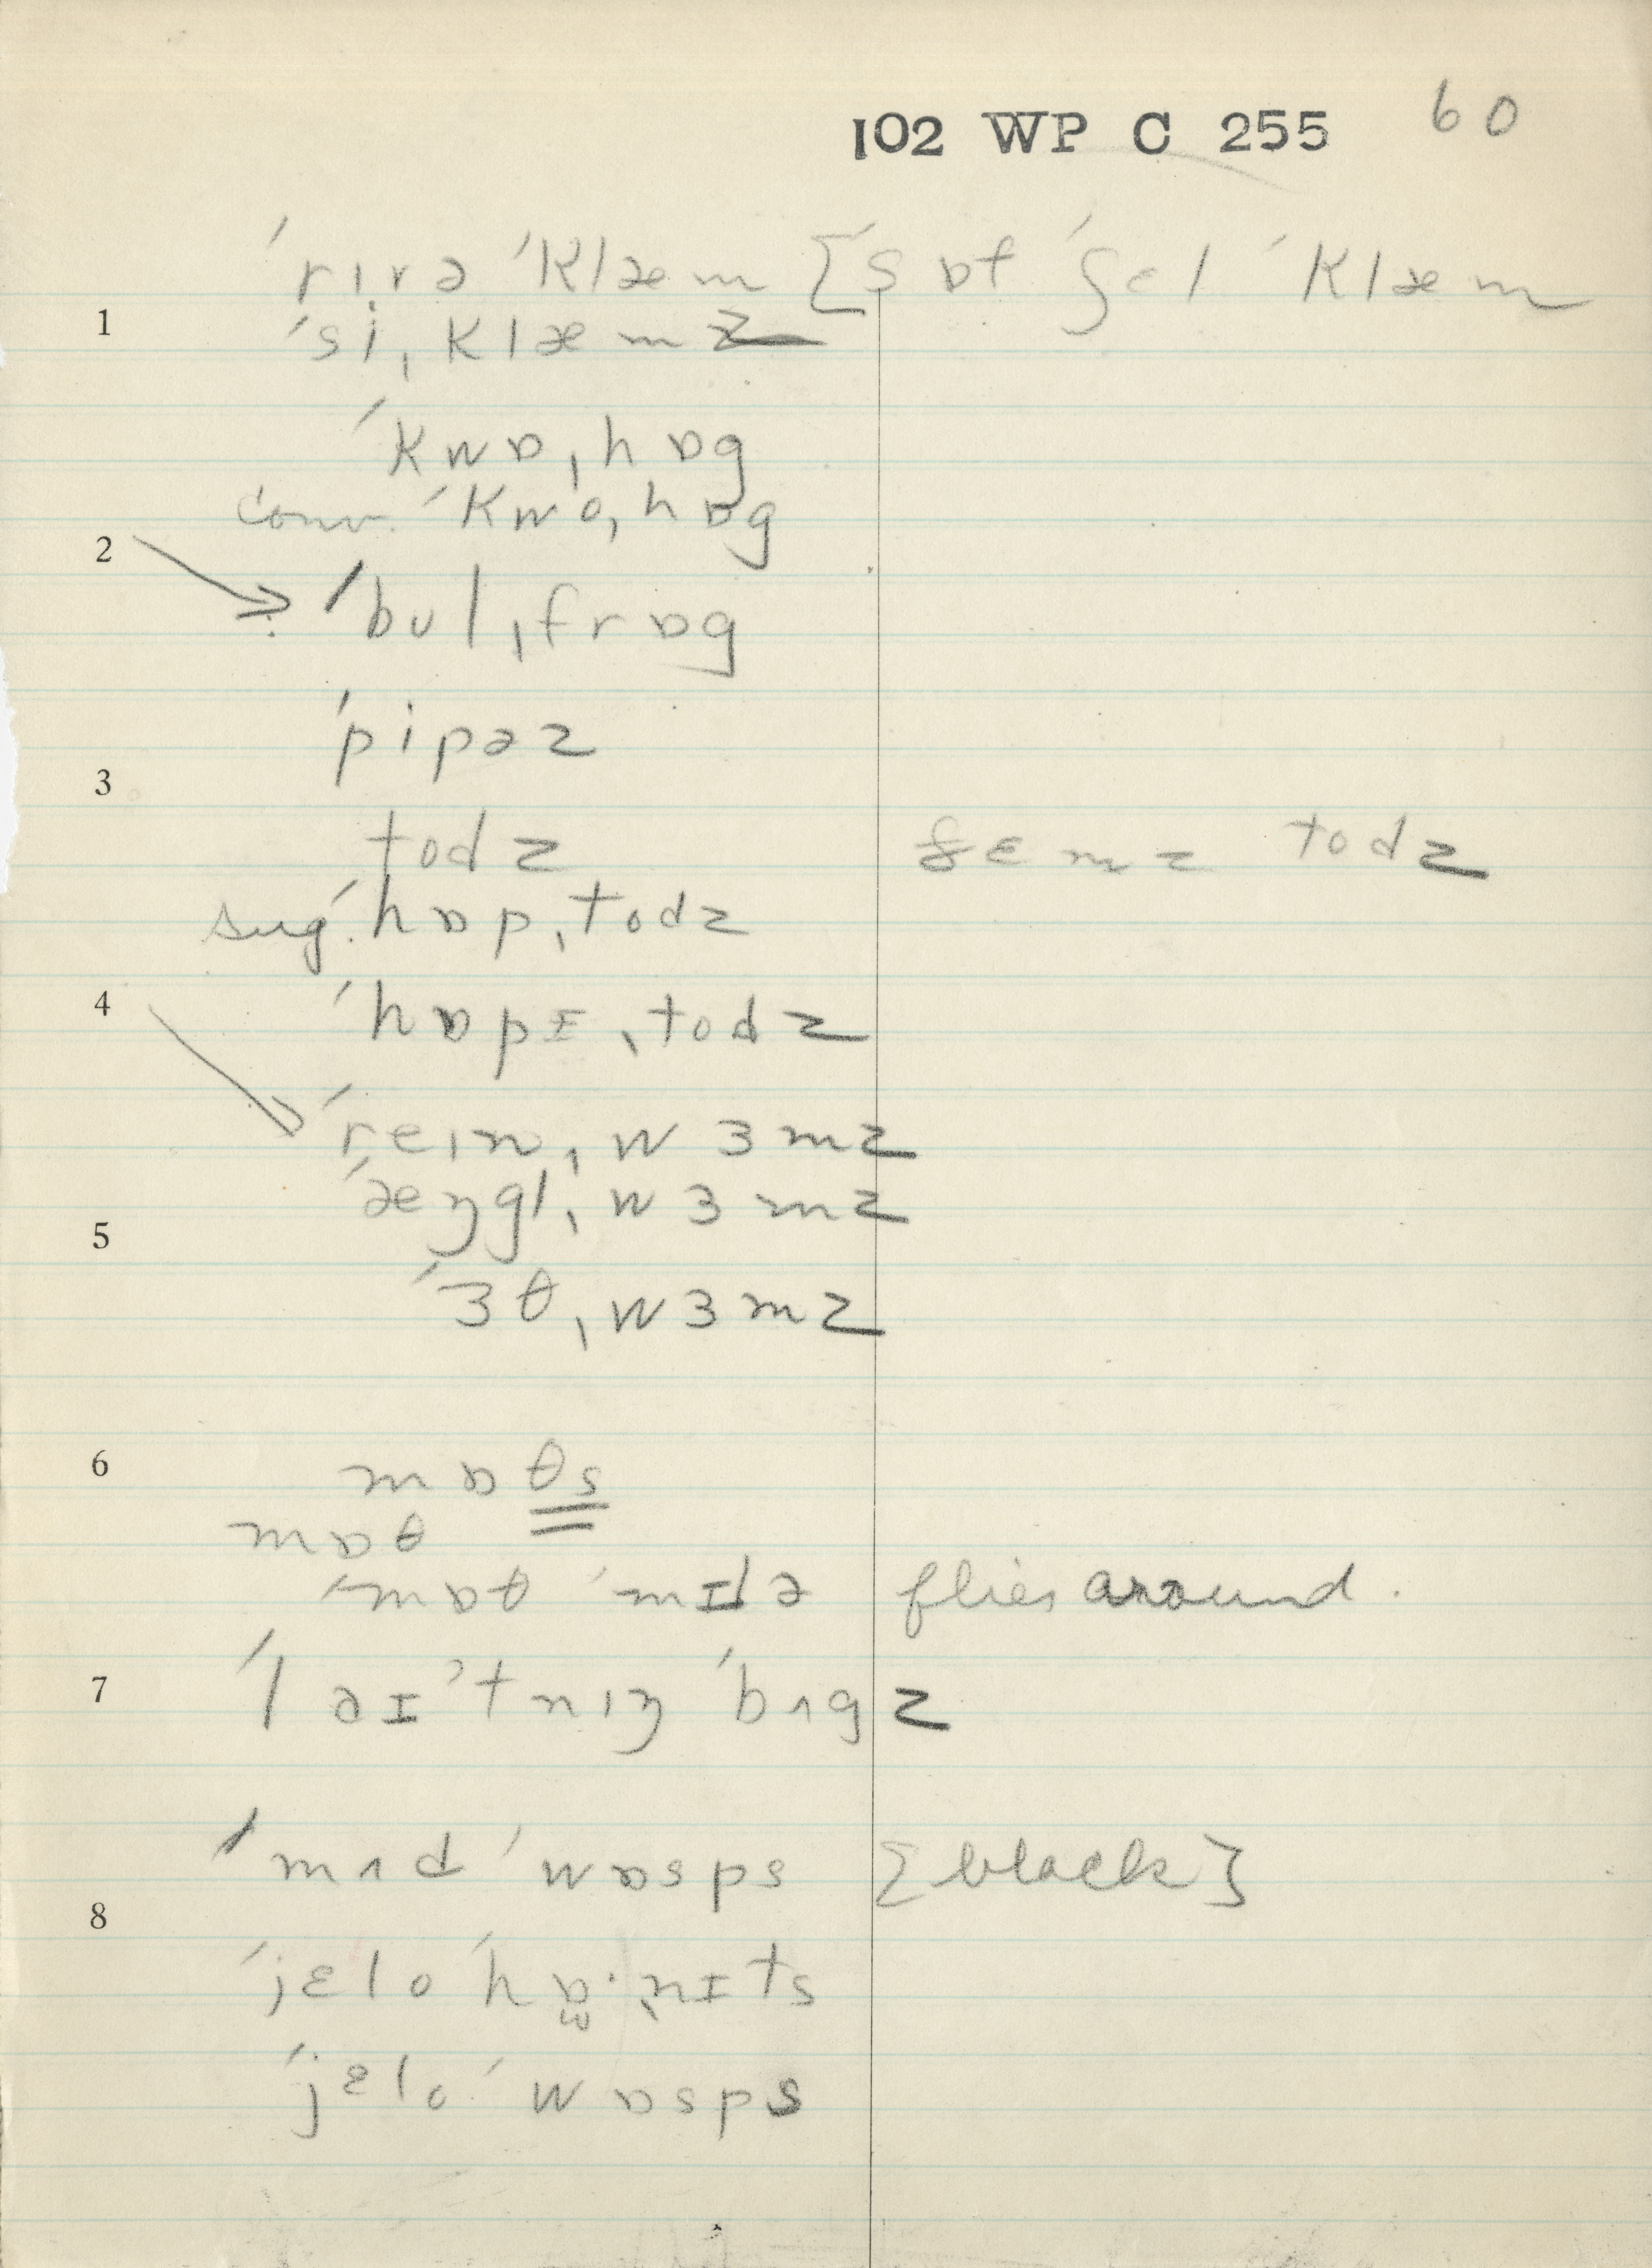 102 WP C 255 60
ˈrɪvə ˈklæm [ˈsɒf ˈʃɛl ˈklæm
1 ˈsiˌklæmz
ˈkwɒˌhɒg
conv. ˈkwoˌhɒg
2 → ˈbʊlˌfrɒg
ˈpipəz
3
todz sɛmz todz
sug. ˈhɒpˌtodz
4 ˈhɒpɪˌtodz
ˈreɪnˌwɜmz
ˈæŋglˌwɜmz
5
ˈɜθˌwɜmz
6 mɒθs
mɒθ
ˈmɒθ ˈmɪlə flies around.
7 ˈlaɪˈtnɪŋ ˈbʌgz
ˈmʌd ˈwɒsps [black]
8
ˈjɛlo ˈhɒ·ˌnɪts
ˈjɛlo ˈwɒsps